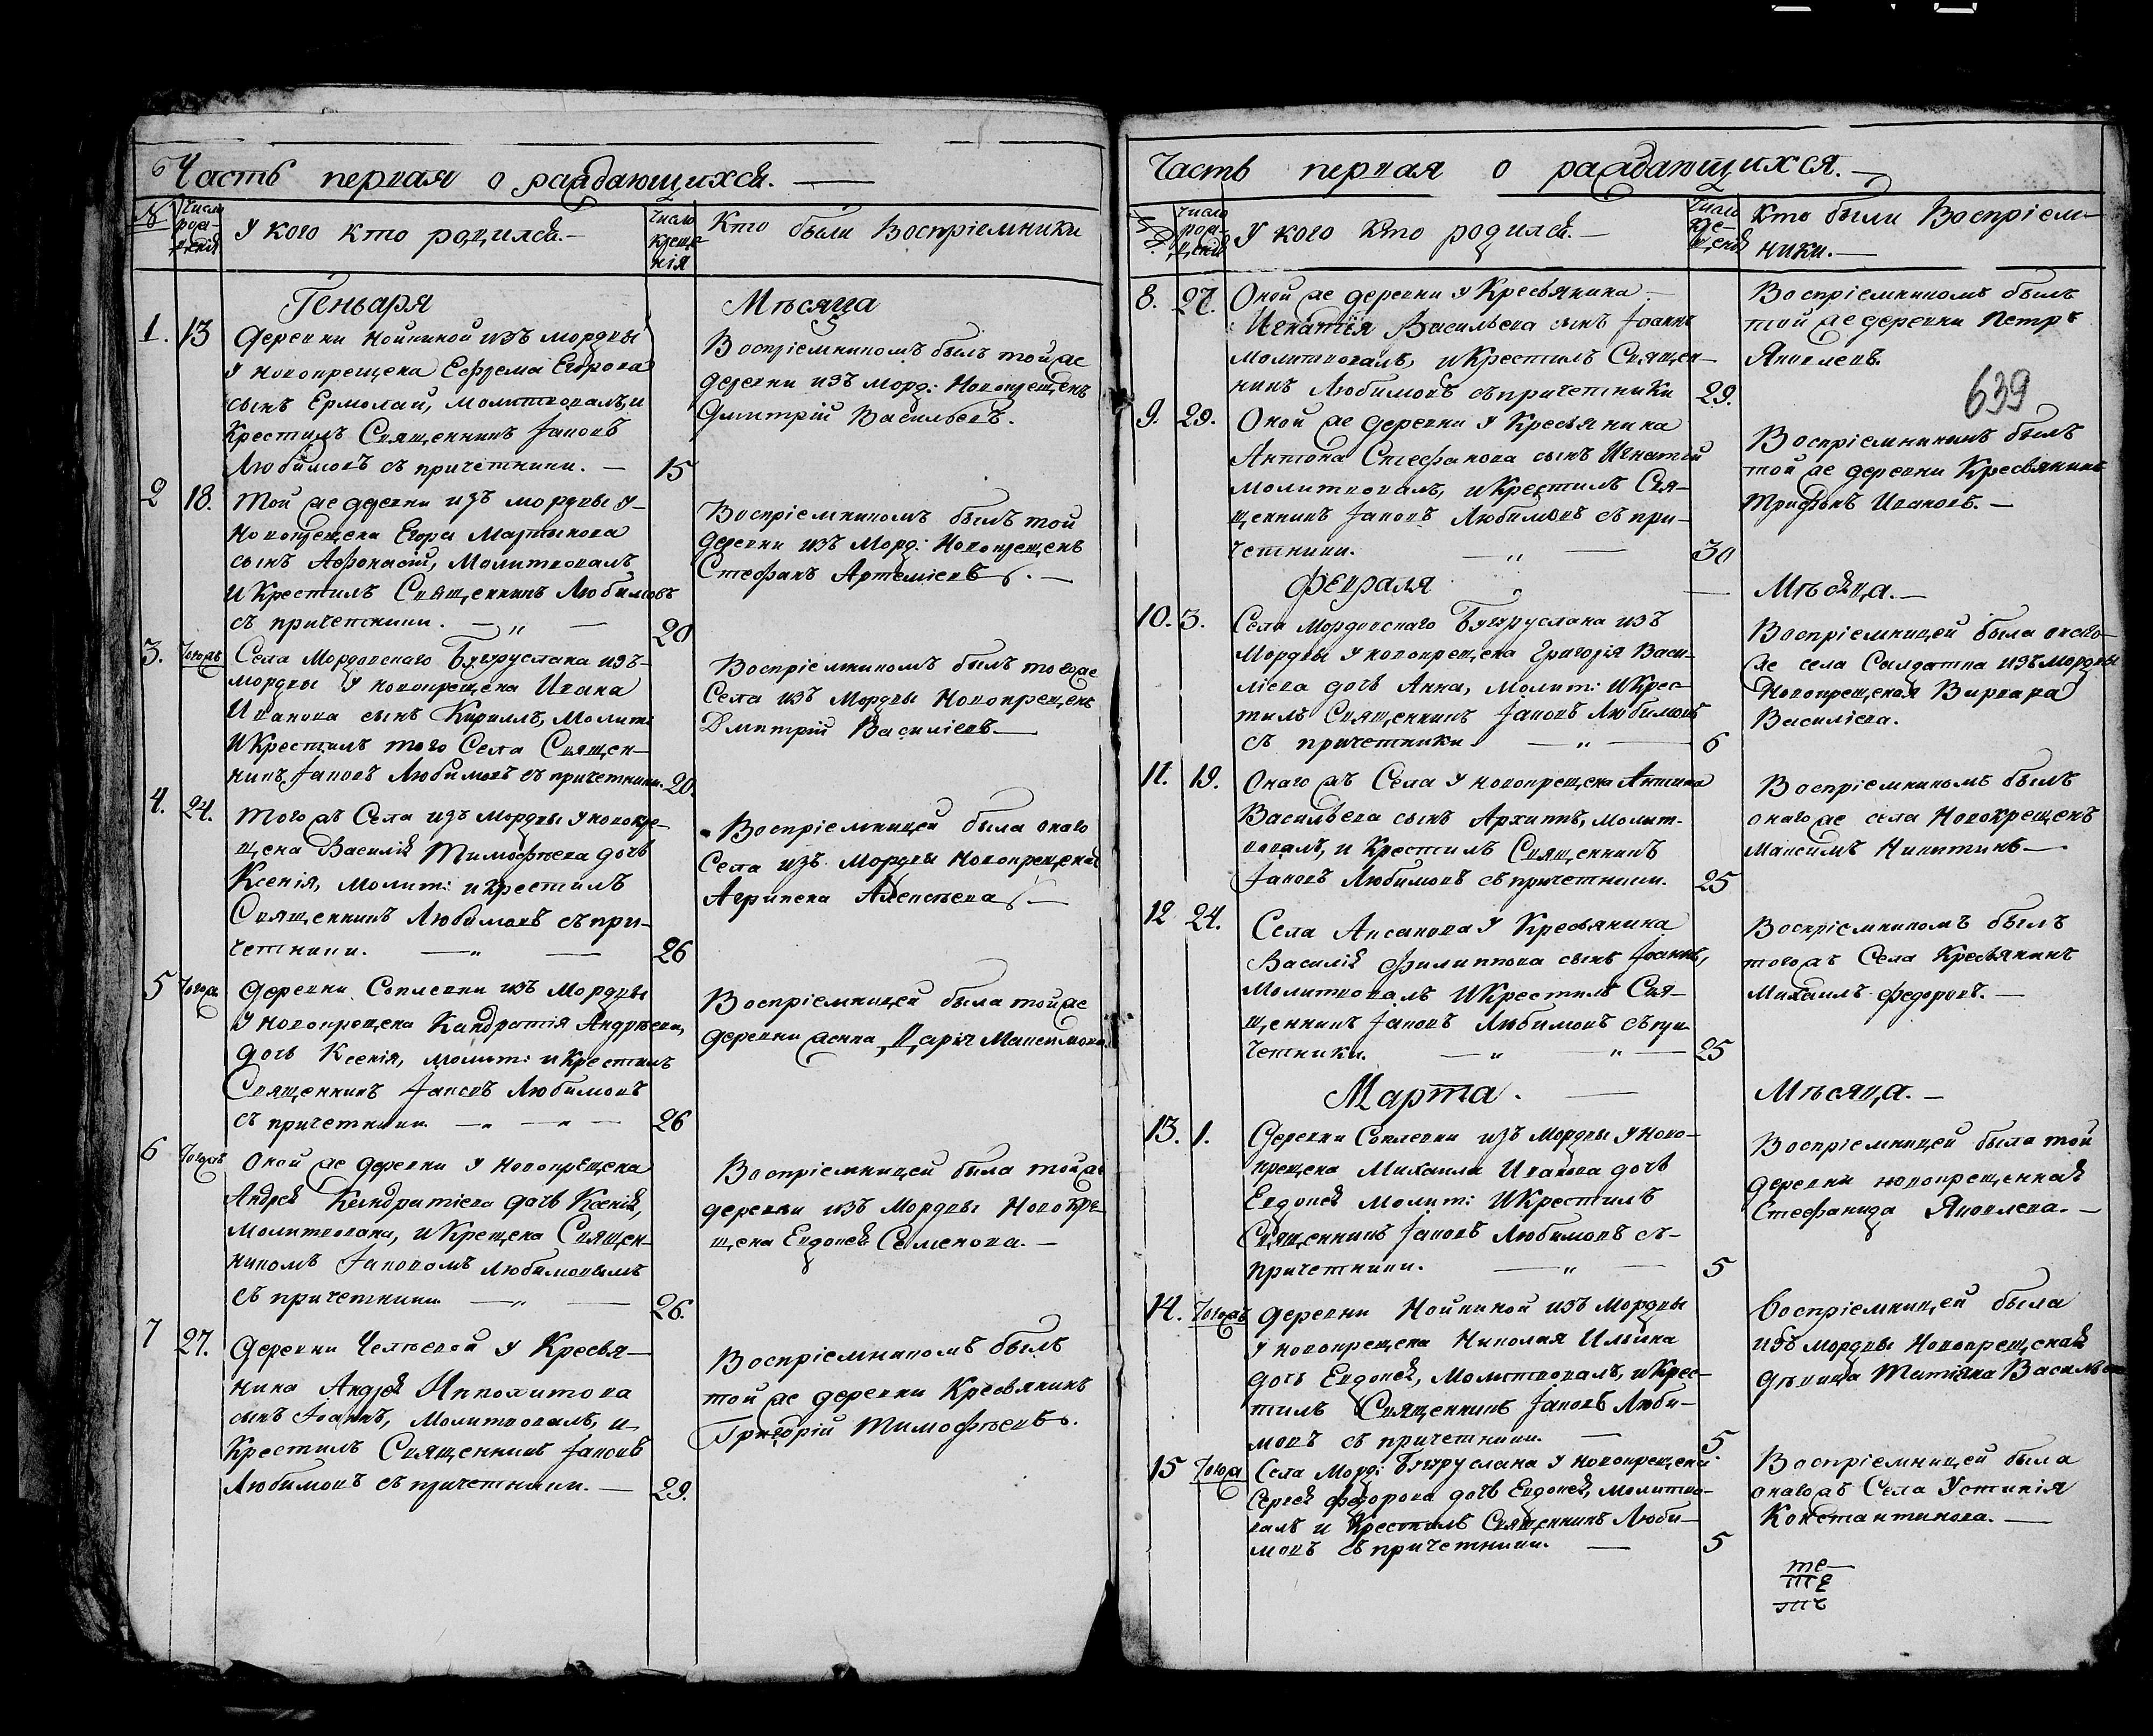 Часть первая о раждающихся.
№
Число рож-
денія
У кого кто родился.
Число
креще
нія
Кто были Воспріемники
Геньваря
Мѣсяца
1. 13
Деревни Нойкиной изъ мордвы
у новокрещена Ефрема Егорова
сынъ Ермолай, молитвовалъ, и
крестилъ Священникъ Іаковъ
Любимовъ съ причетники. 15
Воспріемникомъ былъ той же
деревни изъ морд: Новокрещенъ
Дмитрій Васильевъ.
2 18.
Той же деревни изъ мордвы у
новокрещена Егора Мартынова
сынъ Афонасій, Молитвовалъ
и Крестилъ Священникъ Любимовъ
съ причетники. 20
Воспріемникомъ былъ той
деревни изъ Морд: Новокрещенъ
Стефанъ Артеміевъ.
3. Тогожъ
Села Мордовскаго Бугуруслана изъ
мордвы у новокрещена Ивана
Иванова сынъ Кириллъ, Молит:
и Крестилъ того Села Священ-
никъ Іаковъ Любимовъ съ причетники. 20.
Воспріемникомъ былъ того же
Села изъ Мордвы Новокрещенъ
Дмитрій Василіевъ.
4. 24.
Того жъ Села изъ Мордвы у новокре-
щена Василія Тимофѣева дочь
Ксенія, молит: и крестилъ
Священникъ Любимовъ съ при-
четники. 26
Воспріемницей была онаго
Села изъ Мордвы Новокрещеная
Агрипена Алексѣева
5 Тогож
Деревни Соплевки изъ Мордвы
у Новокрещена Кандратія Андрѣева,
дочь Ксенія, молит: и Крестилъ
Священникъ Іаковъ Любимовъ
съ причетники. 26
Воспріемницей была той же
деревни женка Дарія Максимова
6 Тогожъ
Оной же деревни у новокрещена
Андрея Кандратіева дочь Ксенія,
молитвована, и Крещена Священ-
никомъ Іаковомъ Любимовымъ
съ причетники 26.
Воспріемницей была той же
деревни изъ Мордвы Новокре-
щена Евдокія Семенова.
7 27.
Деревни Челяевой у Кресья-
нина Андрея Ипполитова
сынъ Іоаннъ, Молитвовалъ, и
Крестилъ Священникъ Іаковъ
Любимовъ съ причетники. 29.
Воспріемникомъ былъ
той же деревни Кресьянинъ
Григорій Тимофѣевъ.
Часть первая о раждающихся.
№
Число
рож-
деній
У кого кто родился.
Число
кре-
щенія
Кто были Воспріем-
ники.
8. 27.
Оной же деревни у Кресьянина
Игнатія Васильева сынъ Іоаннъ
молитвовалъ, и Крестилъ Священ-
никъ Любимовъ съ причетники 29.
Воспріемникомъ былъ
той же деревни Петръ
Яковлевъ.
639
9. 29.
Оной же деревни у Кресьянина
Антона Стефанова сынъ Игнатій
молитвовалъ, и Крестилъ Свя-
щенникъ Іаковъ Любимовъ съ при-
четники. 30
Воспріемникомъ былъ
той же деревни Кресьянинъ
Трифонъ Ивановъ.
Февраля
Мѣсяца.
10. 3.
Села Мордовскаго Бугуруслана изъ
Мордвы у новокрещена Григорія Васи-
ліева дочь Анна, Молит: и Крес-
тилъ Священникъ Іаковъ Любимовъ
съ причетники 6
Воспріемницей была онаго
же села Салдатка изъ Мордвы
Новокрещеная Варвара
Василіева.
11. 19.
Онаго жъ Села у новокрещена Антипа
Васильева сынъ Архиппъ, молит-
вовалъ, и Крестилъ Священникъ
Іаковъ Любимовъ съ причетники. 25
Воспріемникомъ былъ
онаго же села Новокрещенъ
Максимъ Никитинъ
12 24.
Села Аксакова у Кресьянина
Василія Филиппова сынъ Іоаннъ,
молитвовалъ и Крестилъ Свя-
щенникъ Іаковъ Любимовъ съ при-
четники. 25
Воспріемникомъ былъ
того жъ Села Кресьянинъ
Михаилъ Федоровъ.
Марта.
Мѣсяца.
13. 1.
Деревни Соплевки изъ Мордвы у Ново-
крещена Михаила Иванова дочь
Евдокея молит: и Крестилъ
Священникъ Іаковъ Любимовъ съ
причетники. 5
Воспріемницей была той
деревни новокрещенная
Стефанида Яковлева.
14. Тогожъ
Деревни Нойкиной изъ Мордвы
у новокрещена Николая Ильина
дочь Евдокея, Молитвовалъ, и Крес-
тилъ Священникъ Іаковъ Люби-
мовъ съ причетники. 5.
Воспріемницей была
изъ мордвы Новокрещеная
дѣвица Татіяна Васильева
15 Тогож
Села Морд: Бугуруслана у новокрещена
Сергея Федорова дочь Евдокея, молитво-
валъ и Крестилъ Священникъ Люби-
мовъ съ причетники. 5
Воспріемницей была
онаго жъ Села Устинія
Константинова.